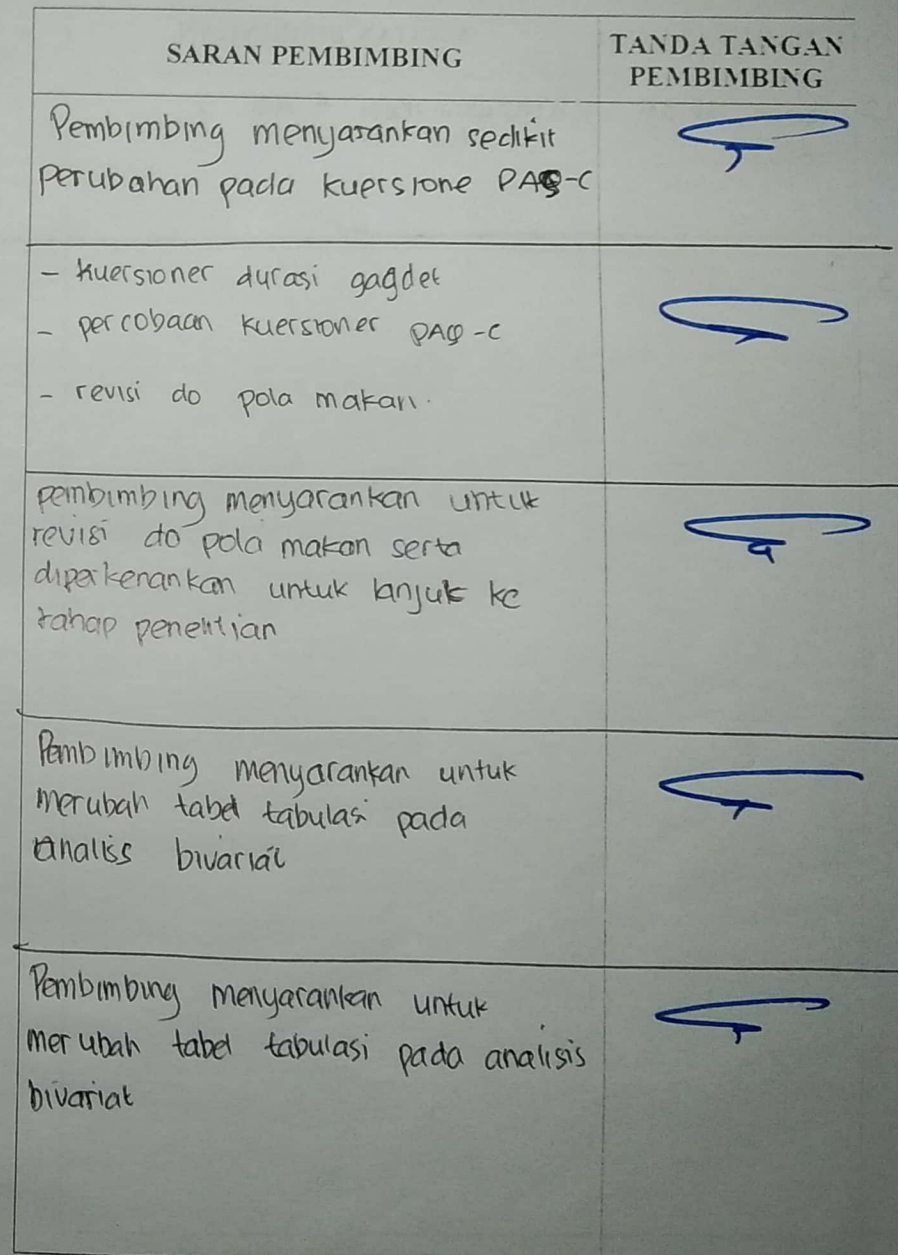 SARAN PEMBIMBING
TANDA TANGAN
PEMBIMBING
Pembimbing menyarankan sedikit
perubahan pada kuersione PAQ-C
- kuersioner durasi gagdet
- percobaan kuersioner PAQ-C
- revisi do pola makan.
pembimbing menyarankan untuk
revisi do pola makan serta
diperkenankan untuk lanjuk ke
tahap penelitian
Pembimbing menyarankan untuk
merubah tabel tabulasi pada
analiss bivariat
Pembimbing menyarankan untuk
merubah tabel tabulasi pada analisis
bivariat